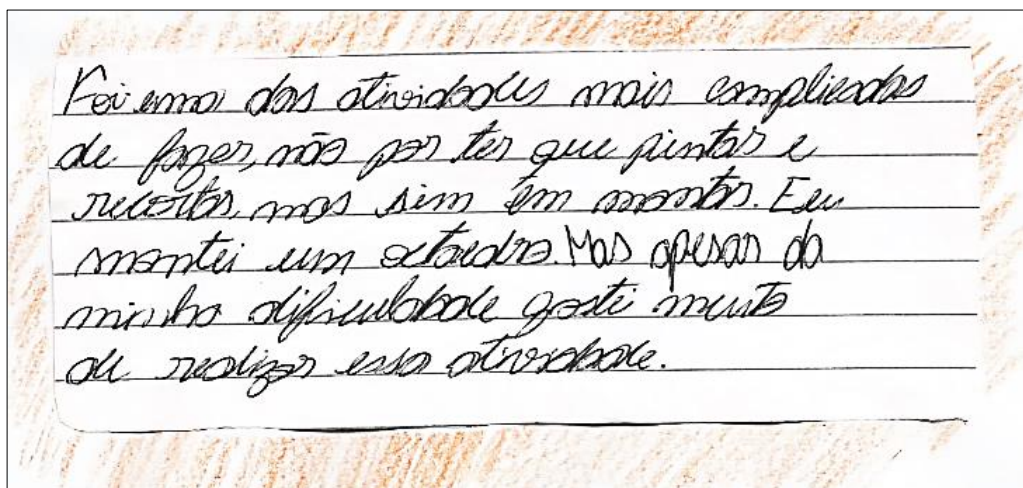 Foi uma das atividades mais complicadas
de fazer, não por ter que pintar e
recortar, mas sim em montar. Eu
montei um octaedro. Mas apesar da
minha dificuldade gostei muito
de realizar essa atividade.